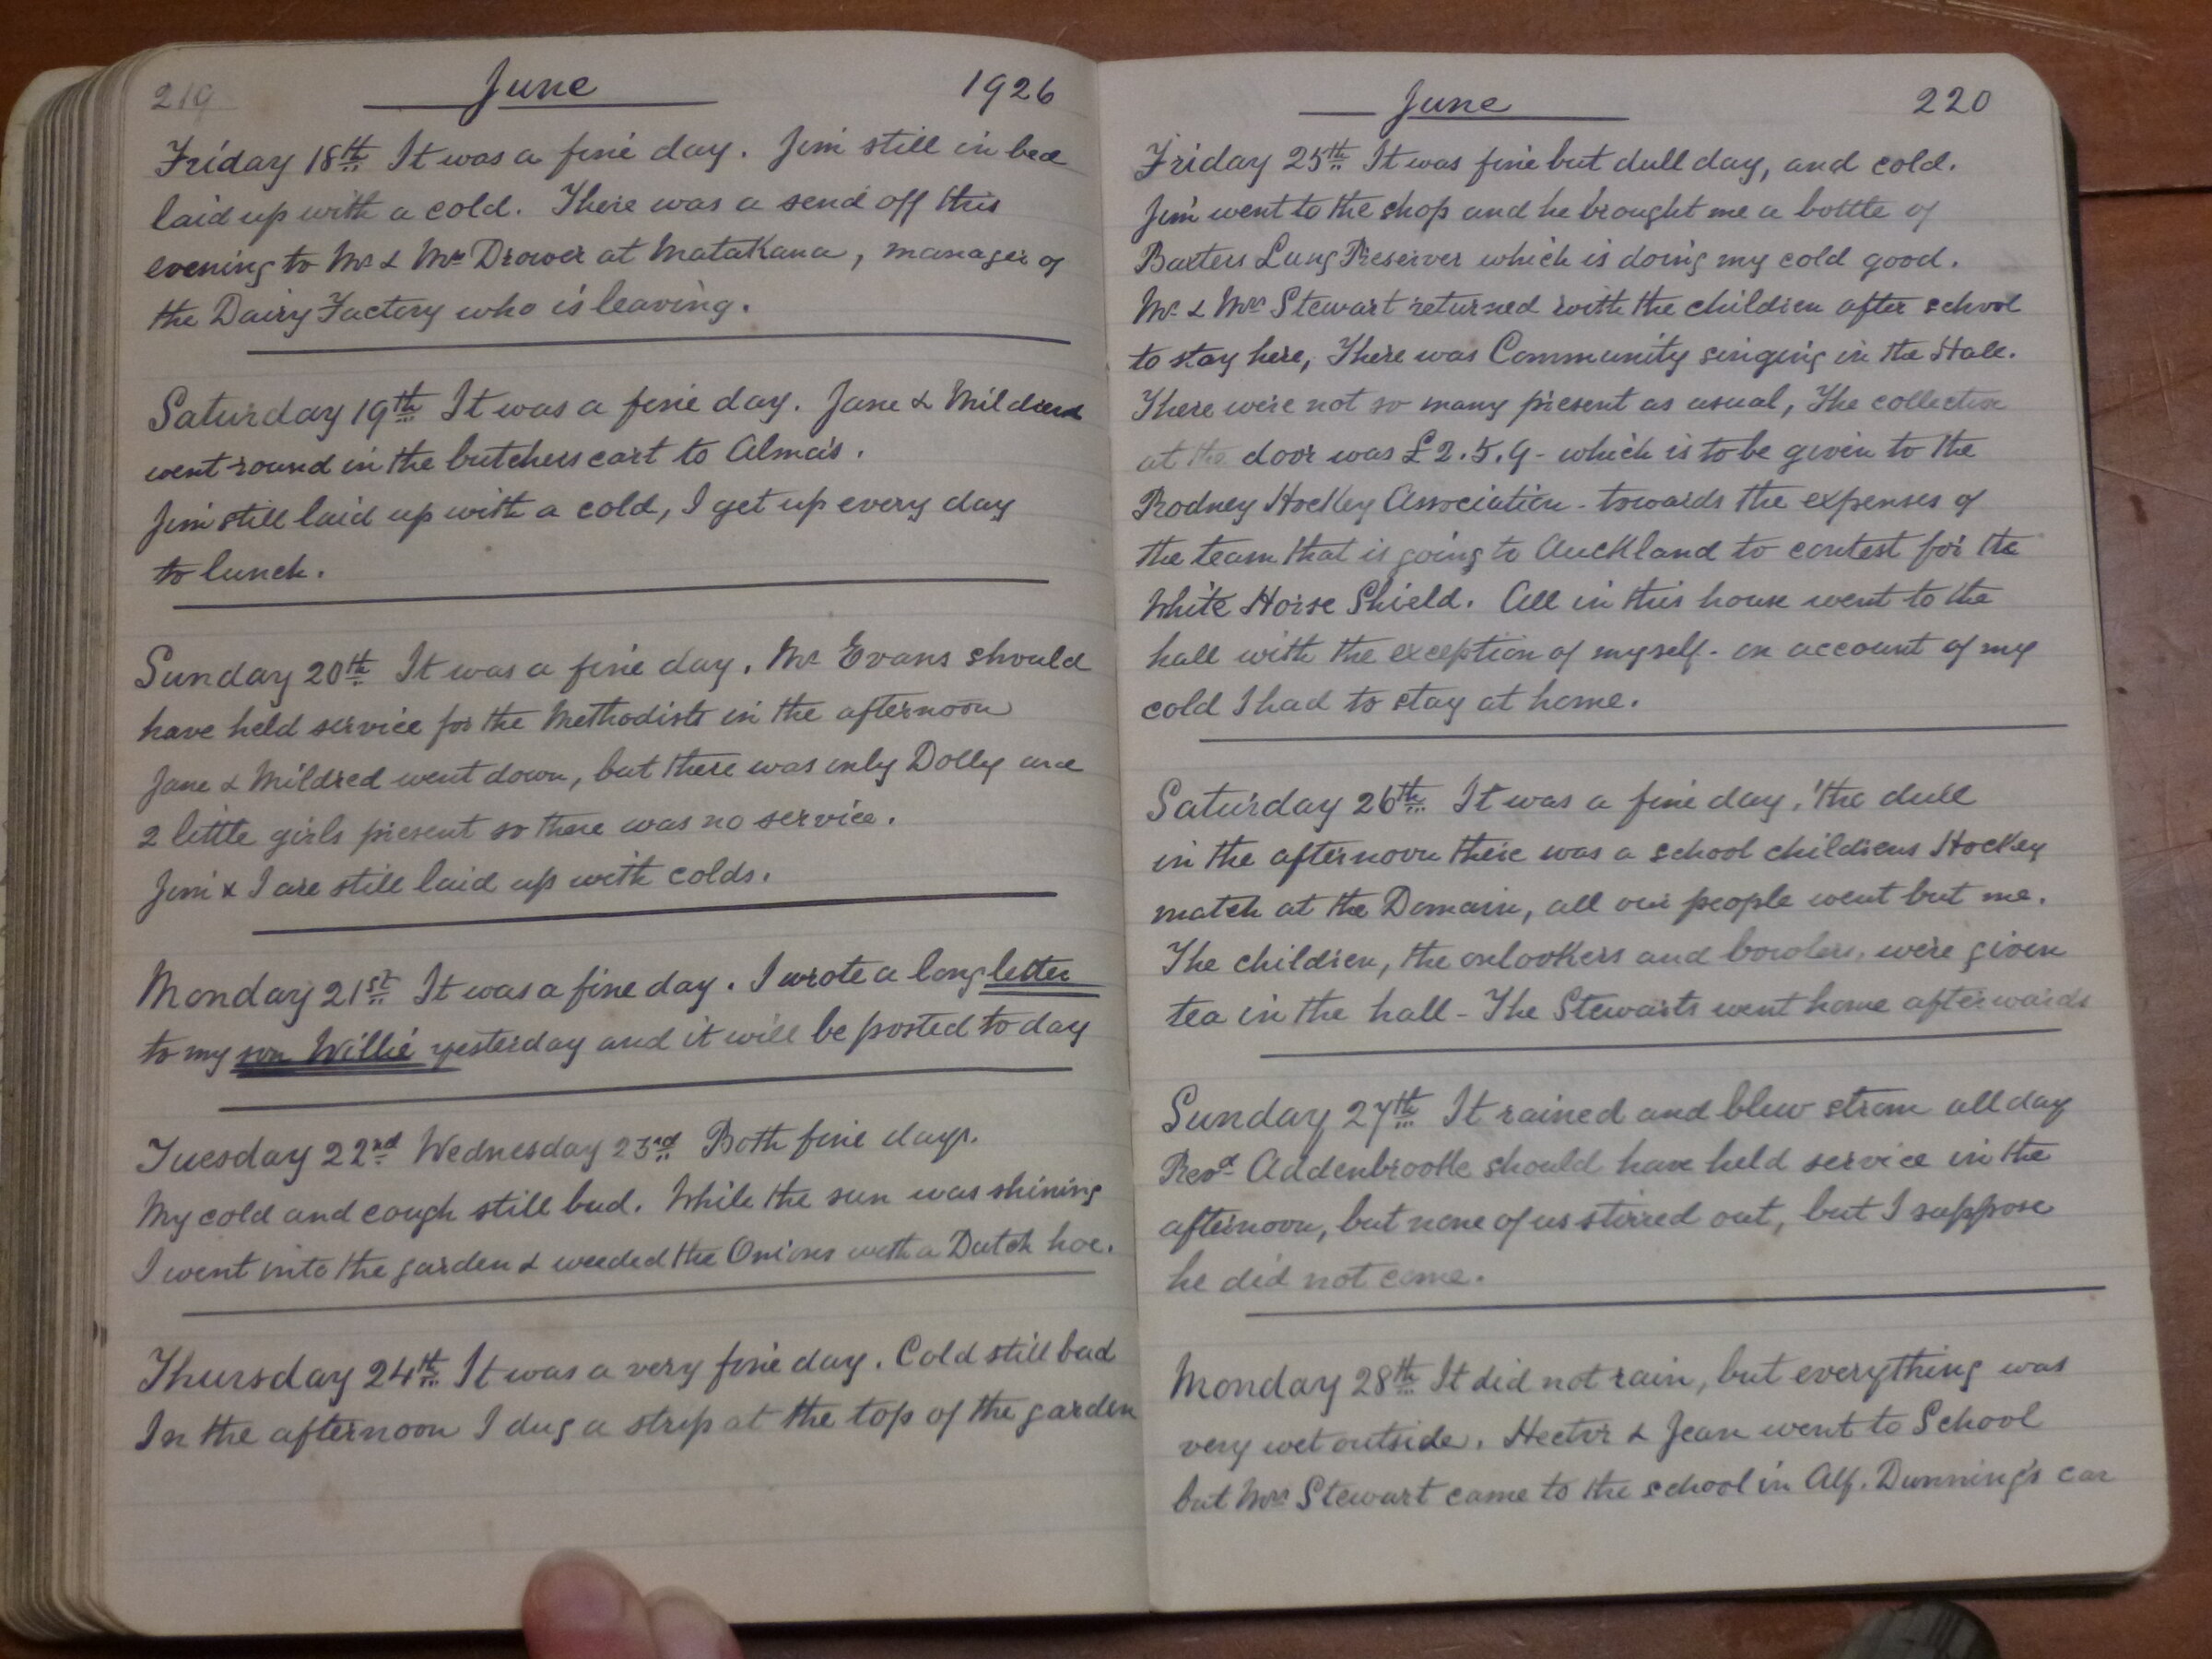 219 June 1926
Friday 18th It was a fine day. Jim still in bed
laid up with a cold. There was a send off this
evening to Mr & Mrs Drower at Matakana, manager of
the Dairy Factory who is leaving.
Saturday 19th It was a fine day. Jane & Mildred
went round in the butchers cart to Alma's.
Jim still laid up with a cold, I get up every day
to lunch.
Sunday 20th It was a fine day. Mr Evans should
have held service for the Methodists in the afternoon
Jane & Mildred went down, but there was only Dolly and
2 little girls present so there was no service.
Jim & I are still laid up with colds.
Monday 21st It was a fine day. I wrote a long letter
to my son Willie yesterday and it will be posted to day
Tuesday 22nd Wednesday 23rd Both fine days.
My cold and cough still bad. While the sun was shining
I went into the garden & weeded the Onions with a Dutch hoe.
Thursday 24th It was a very fine day. Cold still bad
In the afternoon I dug a strip at the top of the garden
June 220
Friday 25th It was fine but dull day, and cold.
Jim went to the shop and he brought me a bottle of
Baxters Lung Preserver which is doing my cold good.
Mr & Mrs Stewart returned with the children after school
to stay here, There was Community singing in the Hall.
There were not so many present as usual, The collection
at the door was £2.5.9 - which is to be given to the
Rodney Hockey Association - towards the expenses of
the team that is going to Auckland to contest for the
White Horse Shield. All in this house went to the
hall with the exception of myself - on account of my
cold I had to stay at home.
Saturday 26th It was a fine day, 'tho dull
in the afternoon there was a school childrens Hockey
match at the Domain, all our people went but me.
The children, the onlookers and bowlers, were given
tea in the hall - The Stewarts went home afterwards
Sunday 27th It rained and blew strom all day
Revd Addenbrooke should have held service in the
afternoon, but none of us stirred out, but I suppose
he did not come.
Monday 28th It did not rain, but everything was
very wet outside. Hector & Jean went to School
but Mrs Stewart came to the school in Alf. Dunning's car